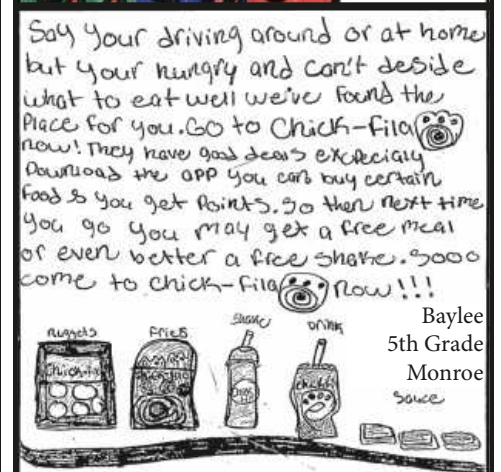 Say your driving around or at home
but your hungry and can't deside
what to eat well we've found the
Place for you. Go to Chick-fila
now! They have good deals excpecialy
Download the app you can buy certain
food & you get Points. So then next time
you go you may get a free meal
or even better a free shake. Sooo
come to Chick-fila now!!!
Baylee
5th Grade
Monroe
nuggets
fries
shake
drink
sauce
Chickfila